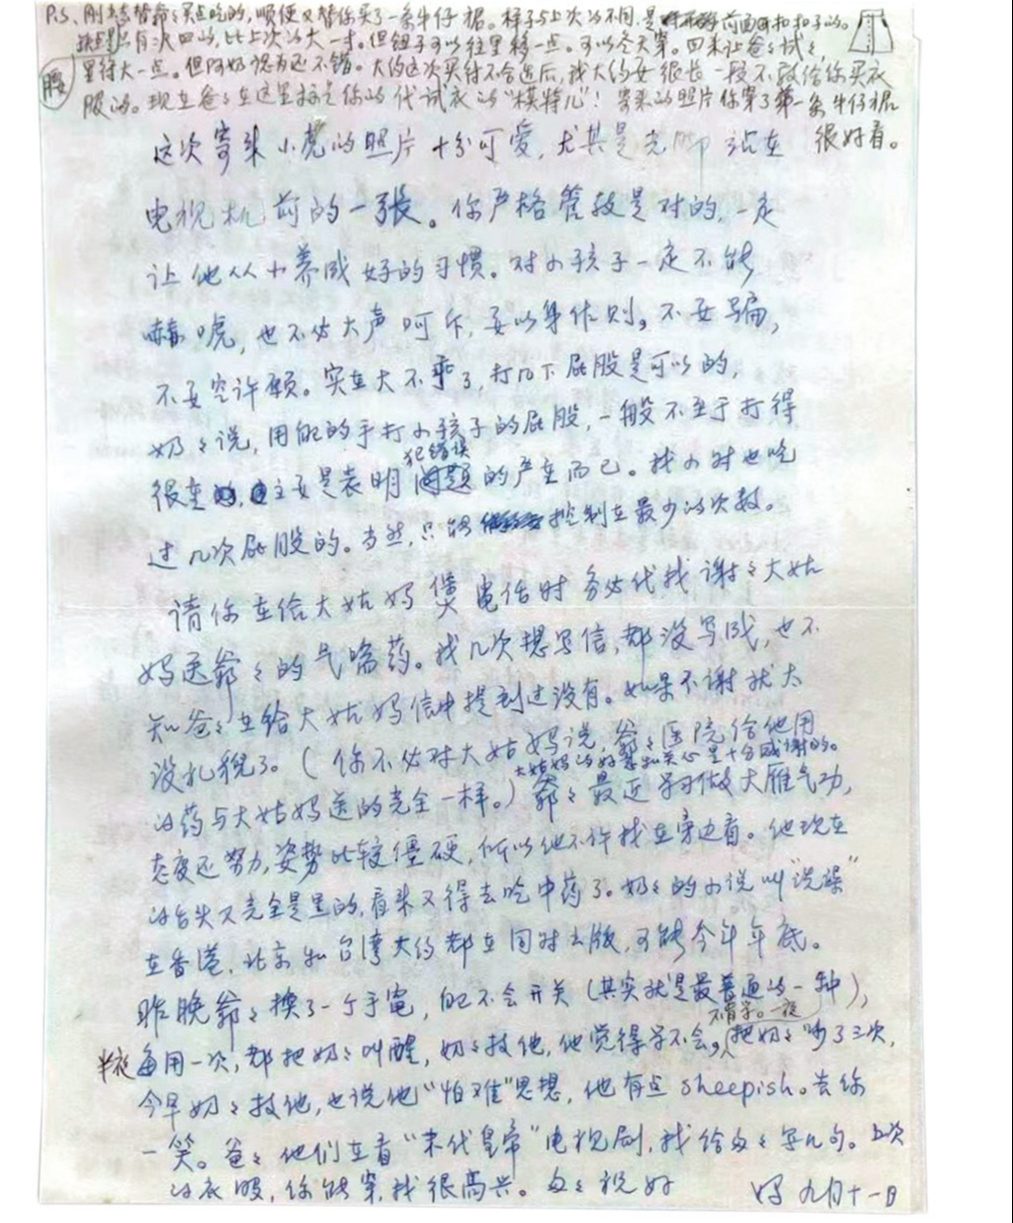 P.S. 刚去替爷々买点吃的,顺便又替你买了一条牛仔裙。样子与上次的不同,是前面可扣扣子的。
缺点是只有大四的,比上次的大一寸。但钮子可以往里移一点。可以冬天穿。回来让爸々试々,
腰
显得大一点。但阿奶认为还不错。大约这次买得不合适后,我大约要很长一段不敢给你买衣
服的。现在爸々在这里标充你的代试衣的“模特儿”!寄来的照片你穿了第一条牛仔裙
很好看。
这次寄来小虎的照片十分可爱,尤其是光脚站在
电视机前的一張。你严格管教是对的,一定
让他从小养成好的习惯。对小孩子一定不能
嚇唬,也不必大声呵斥,要以身作则。不要骗,
不要空许愿。实在太不乖了,打几下屁股是可以的,
奶々说,用自己的手打小孩子的屁股,一般不至于打得
犯错误
很重,主要是表明问题的严重而已。我小时也吃
过几次屁股的。当然,只能控制在最少的次数。
请你在给大姑妈电话时务必代我谢々大姑
妈送爷々的气喘药。我几次想写信,都没写成,也不
知爸々在给大姑妈信中提到过没有。如果不谢就太
没礼貌了。(你不必对大姑妈说,爷々医院给他用
大姑妈的好意和关心是十分感谢的。
的药与大姑妈送的完全一样。)爷々最近学习做大雁气功,
态度还努力,姿势比较僵硬,所以他不许我在旁边看。他现在
的舌头又完全是黑的,看来又得去吃中药了。奶々的小说叫“洗澡”
在香港,北京和台湾大约都在同时出版,可能今年年底。
昨晚爷々换了一个手電,自己不会开关(其实就是最普通的一种),
不肯学。一夜
半夜每用一次,都把奶々叫醒,奶々教他,他觉得学不会,把奶々吵了三次,
今早奶々教他,也说他“怕难”思想,他有点 sheepish。去你
一笑。爸々他们在看“末代皇帝”电视剧,我给女々写几句。上次
的衣服,你能穿,我很高兴。女々祝好
妈 九月十一日